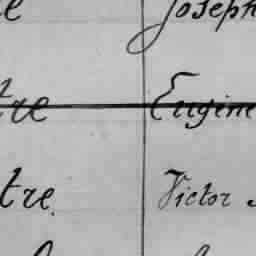 Joseph
tre Eugène
tre Victor